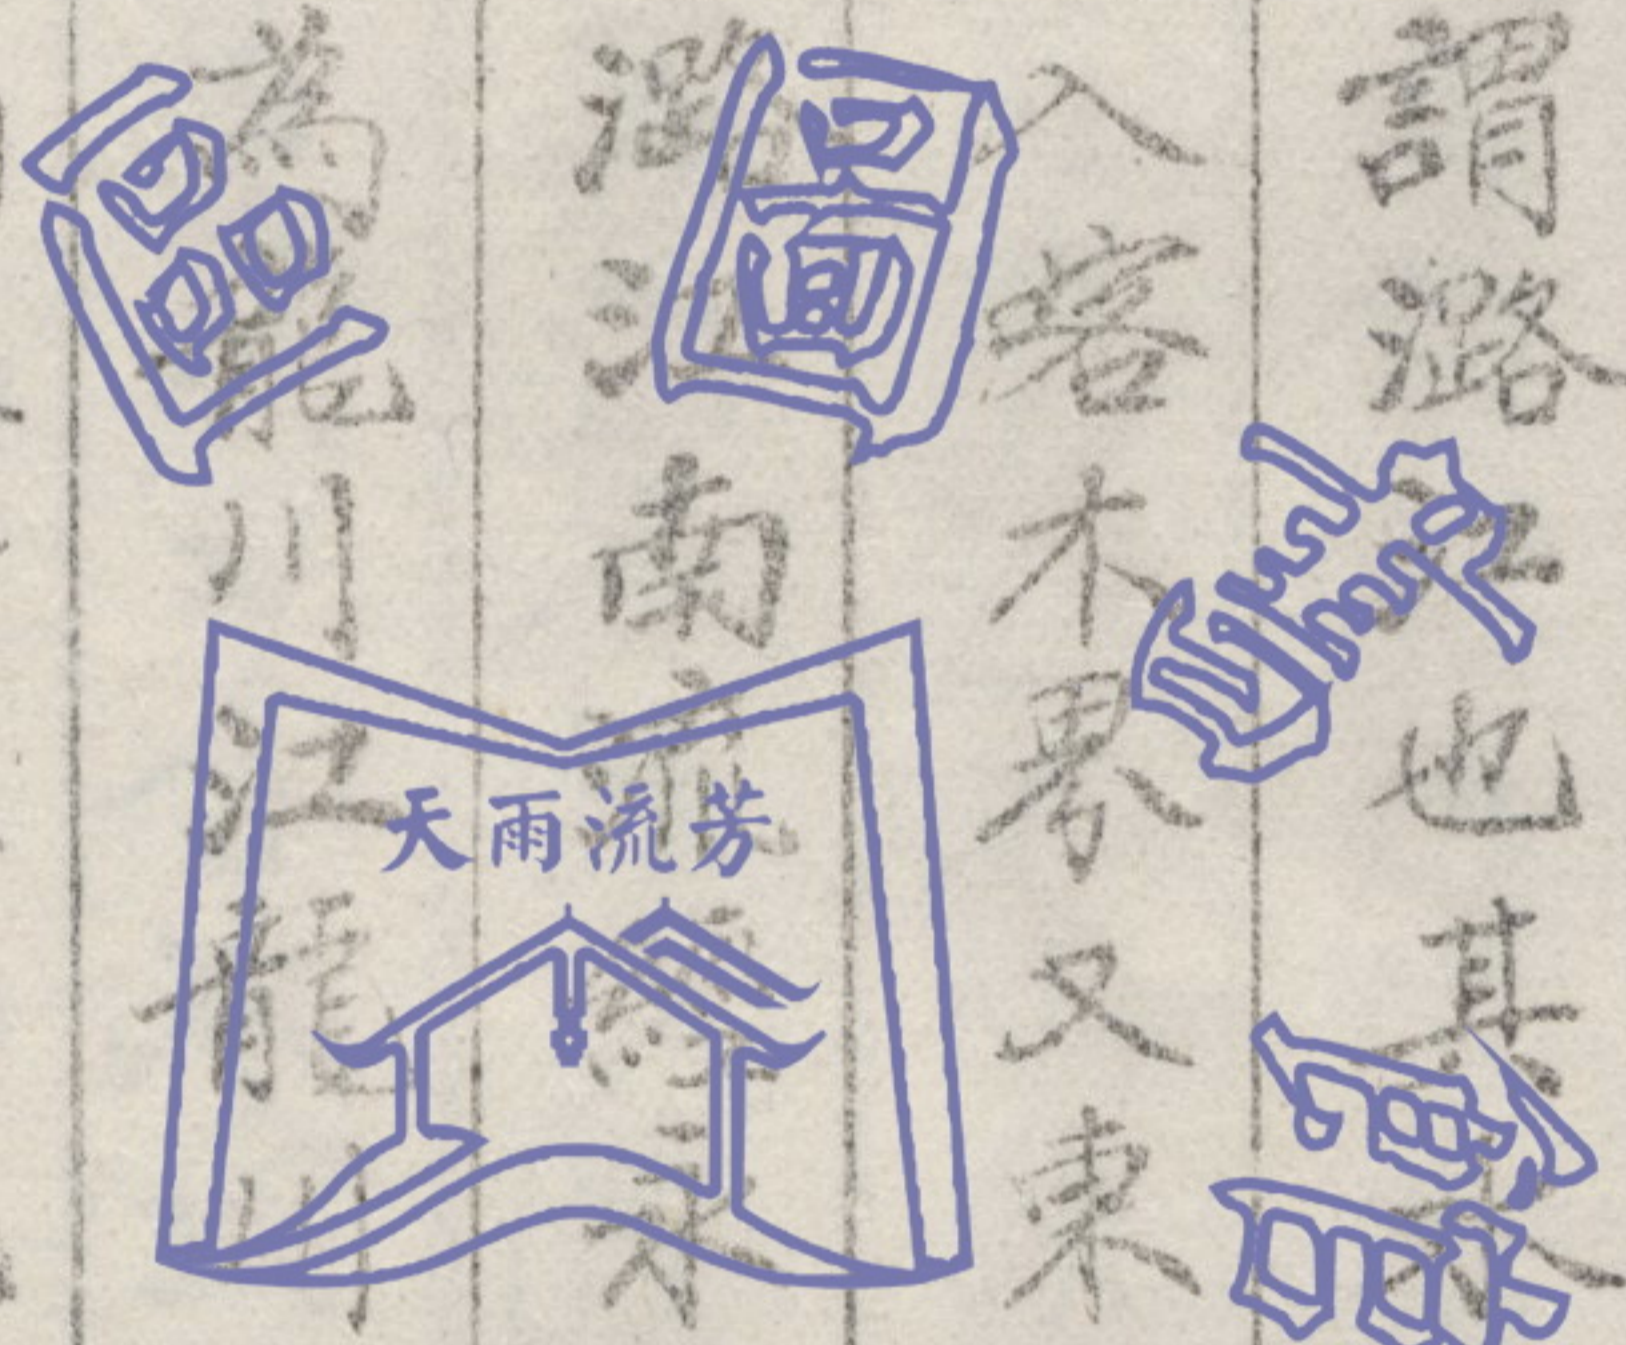 謂潞江也其
入喀木界又東
潞江南流
為龍川江龍川
天雨流芳
圖
區